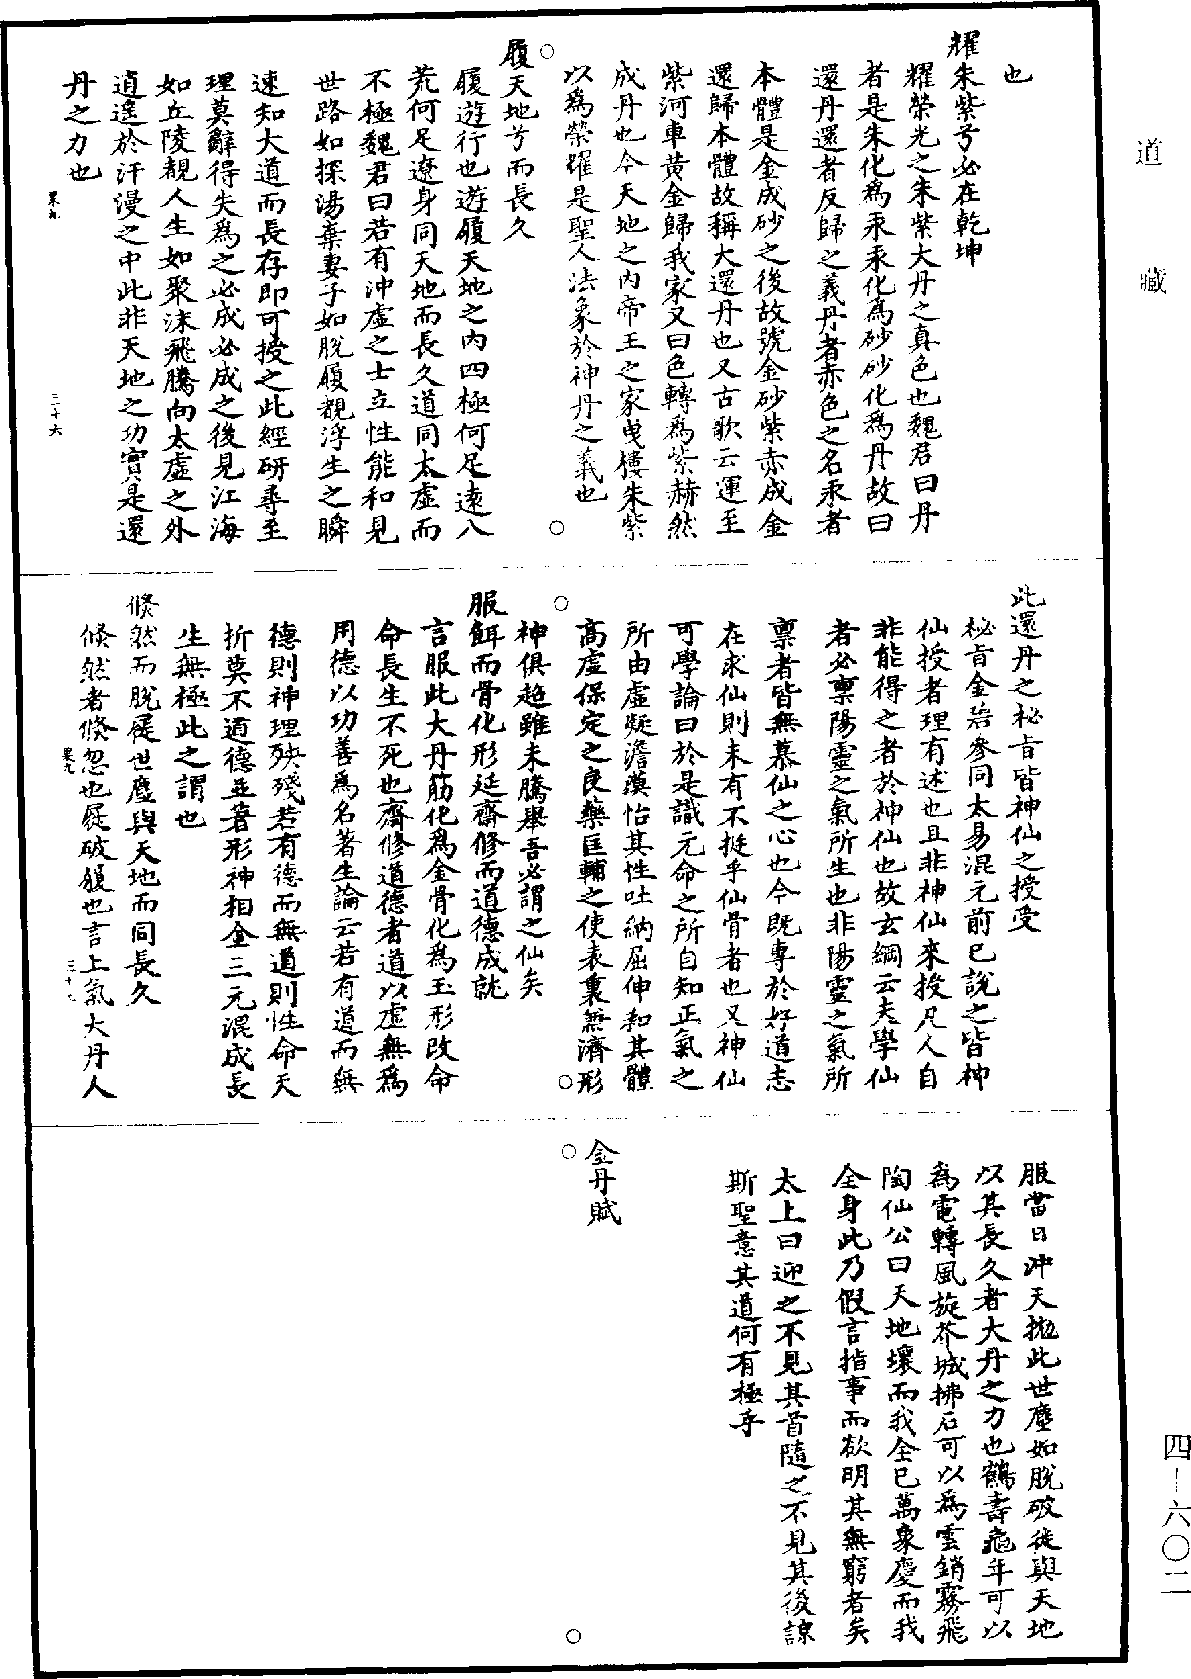 道藏
也
耀朱紫兮必在乾坤
耀榮光之朱紫大丹之真色也魏君曰丹
者是朱化為汞汞化為砂砂化為丹故曰
還丹還者反歸之義丹者赤色之名汞者
本體是金成砂之後故號金砂紫赤成金
還歸本體故稱大還丹也又古歌云運至
紫河車黃金歸我家又曰色轉為紫赫然
成丹也今天地之內帝王之家曳樓朱紫
以為榮耀是聖人法象於神丹之義也
履天地兮而長久
履遊行也遊履天地之內四極何足遠八
荒何足遼身同天地而長久道同太虛而
不極魏君曰若有沖虛之士立性能和見
世路如探湯棄妻子如脫履觀浮生之瞬
速知大道而長存即可授之此經研尋至
理莫辭得失為之必成必成之後見江海
如丘陵覩人生如聚沫飛騰向太虛之外
逍遙於汗漫之中此非天地之功實是還
丹之力也
栗九
三十六
此還丹之秘旨皆神仙之授受
秘旨金碧參同太易混元前已說之皆神
仙授者理有述也且非神仙來授凡人自
非能得之者於神仙也故玄綱云夫學仙
者必禀陽靈之氣所生也非陽靈之氣所
禀者皆無慕仙之心也今既專於好道志
在求仙則未有不挺乎仙骨者也又神仙
可學論曰於是識元命之所自知正氣之
所由虛凝澹漠怡其性吐納屈伸和其體
高虛保定之良藥匡輔之使表裏無濟形
神俱超雖未騰舉吾必謂之仙矣
服餌而骨化形延齋修而道德成就
言服此大丹筋化為金骨化為玉形改命
命長生不死也齋修道德者道以虛無為
用德以功善為名著生論云若有道而無
德則神理殃殘若有德而無道則性命夭
折奠不道德並著形神相全三元混成長
生無極此之謂也
倏然而脫屣世塵與天地而同長久
倏然者倏忽也屣破履也言上氣大丹人
栗九
服當日沖天拋此世塵如脫破徙與天地
以其長久者大丹之力也鶴壽龜年可以
為電轉風旋芥城拂石可以為雲銷霧飛
陶仙公曰天地壞而我全已萬象慶而我
全身此乃假言指事而欲明其無窮者矣
太上曰迎之不見其首隨之不見其後諒
斯聖意其道何有極乎
金丹賦
四—六〇二